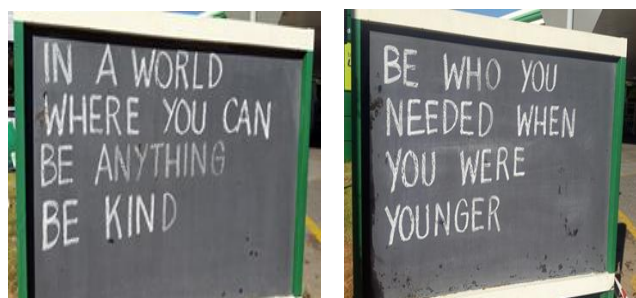 IN A WORLD
WHERE YOU CAN
BE ANYTHING
BE KIND
BE WHO YOU
NEEDED WHEN
YOU WERE
YOUNGER